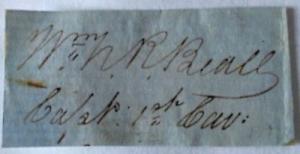 Wm N. R. Beall
Capt. 1st Cav: